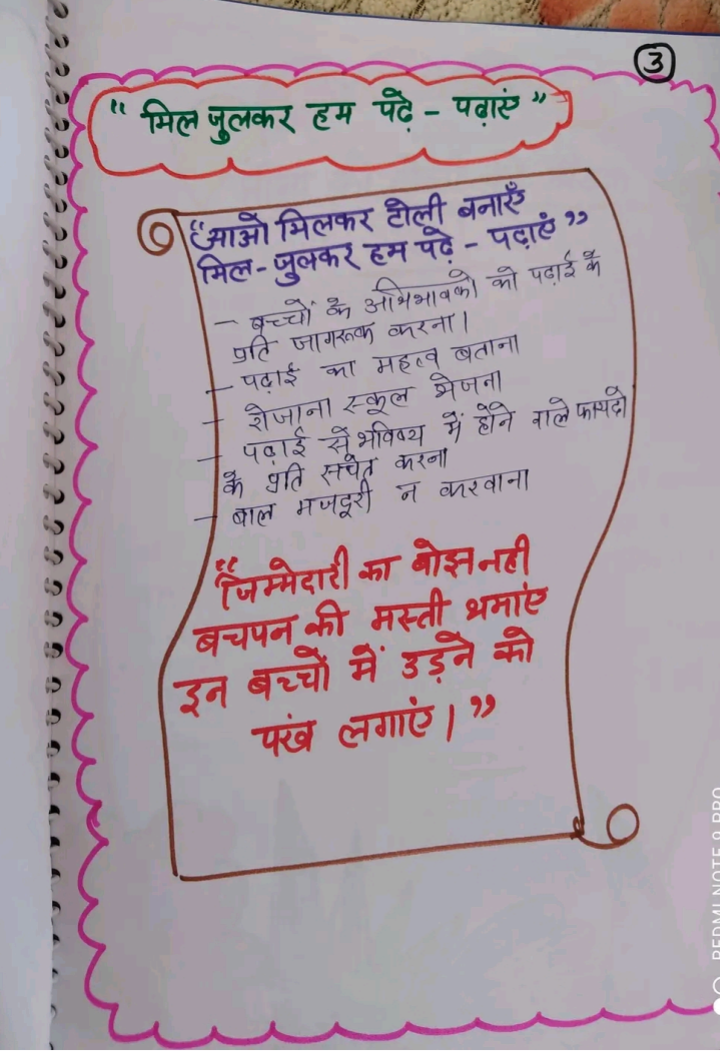 3
“ मिल जुलकर हम पढे़ - पढ़ाएं ”
“आओ मिलकर टोली बनाएँ
मिल - जुलकर हम पढे़ - पढ़ाएं ”
- बच्चों के अभिभावको को पढ़ाई के
प्रति जागरूक करना।
- पढ़ाई का महत्व बताना
- रोजाना स्कूल भेजना
- पढ़ाई से भविष्य में होने वाले फायदो
के प्रति सचेत करना
- बाल मजदूरी न करवाना
“जिम्मेदारी का बोझ नही
बचपन की मस्ती थमाएं
इन बच्चों में उड़ने को
पंख लगाएं। ”
REDMI NOTE 9 PRO